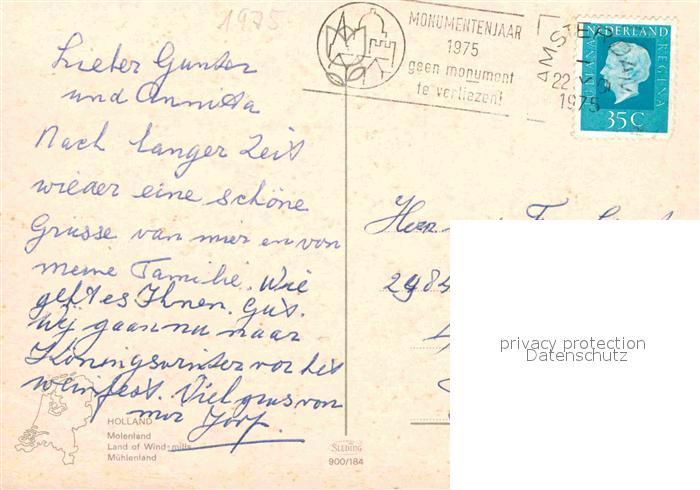 1975
MONUMENTENJAAR
1975
geen monument
te verliezen!
AMSTERDAM
22
1975
NEDERLAND
JULIANA REGINA
35 C
Lieber Gunter
und Annitta
Nach langer Zeit
wieder eine schöne
Grusse van mier en von
meine Familie. Wie
geht es Ihnen. Gut.
Wij gaan nu naar
Köningswinter vor het
weinfest. Viel grus von
mor
Herr
2984
HOLLAND
Molenland
Land of Wind-mills
Mühlenland
SLEDING
900/184
privacy protection
Datenschutz